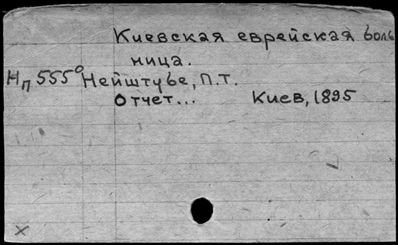 Киевская еврейская боль
ница.
Нп 555° Нейштубе, П.Т.
Отчет... Киев, 1895
х